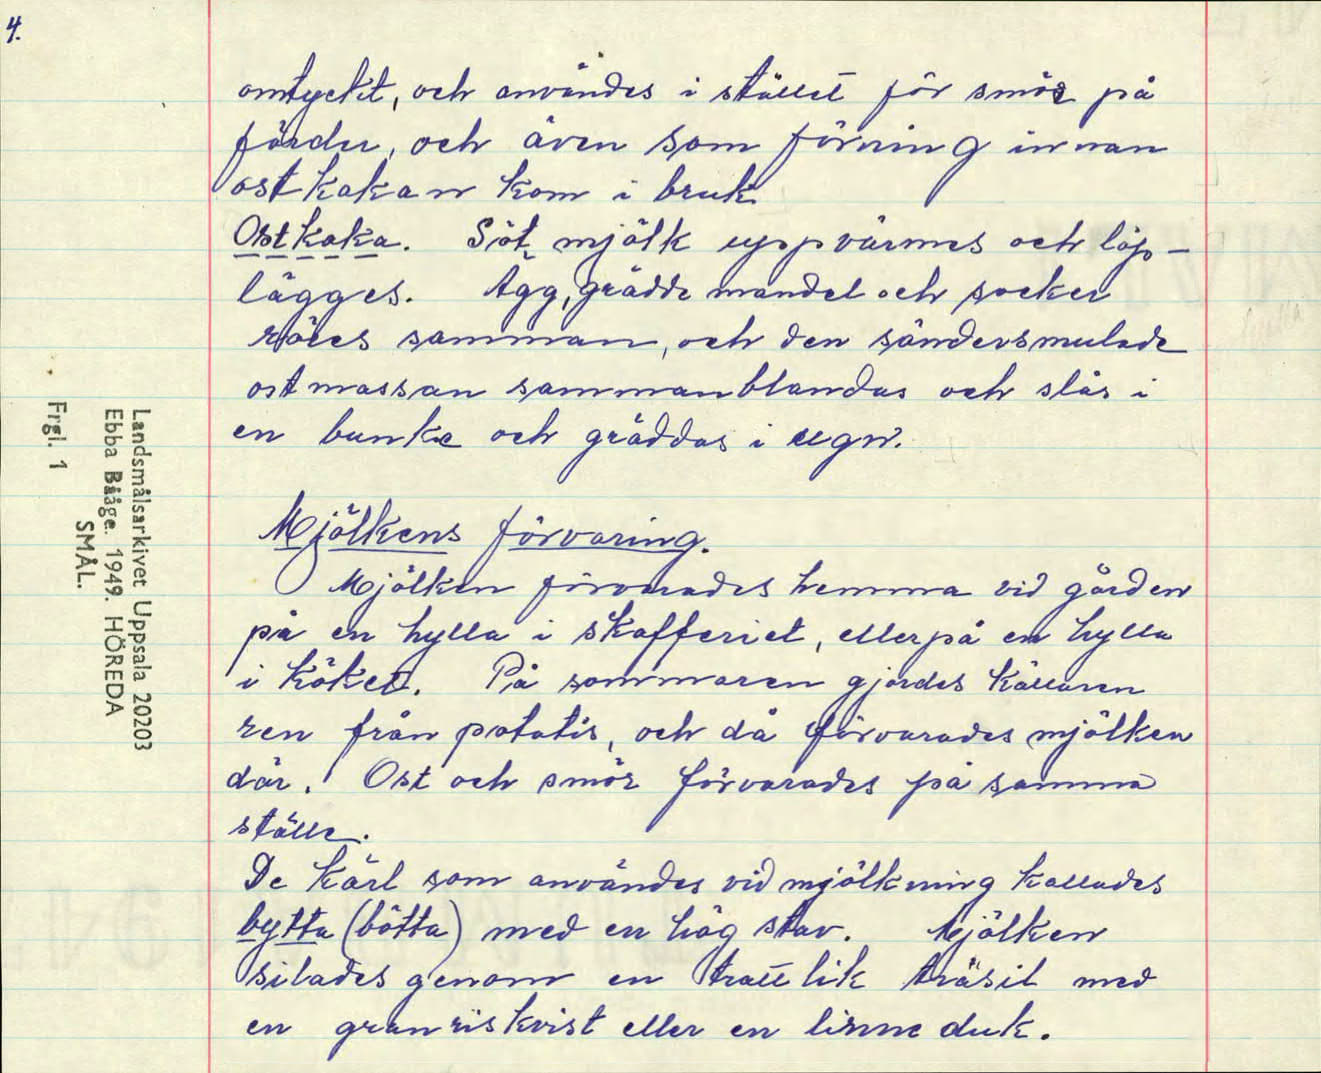 4.
omtyckt, och användes i stället för smör på
färder, och även som förning innan
ostkakan kom i bruk
Ostkaka. Söt mjölk uppvärmes och löp-
lägges. Ägg, grädde mandel och socker
röres samman, och den söndersmulade
ostmassan sammanblandas och slås i
en bunke och gräddas i ugn.
Mjölkens förvaring.
Mjölken förvarades hemma vid gården
på en hylla i skafferiet, eller på en hylla
i köket. På sommaren gjordes källaren
ren från potatis, och då förvarades mjölken
där. Ost och smör förvarades på samma
ställe.
De kärl som användes vid mjölkning kallades
bytta (bötta) med en hög stav. Mjölken
silades genom en trattlik träsil med
en granriskvist eller en linne duk.
Landsmålsarkivet Uppsala 20203
Ebba Bååge. 1949. HÖREDA
SMÅL.
Frgl. 1